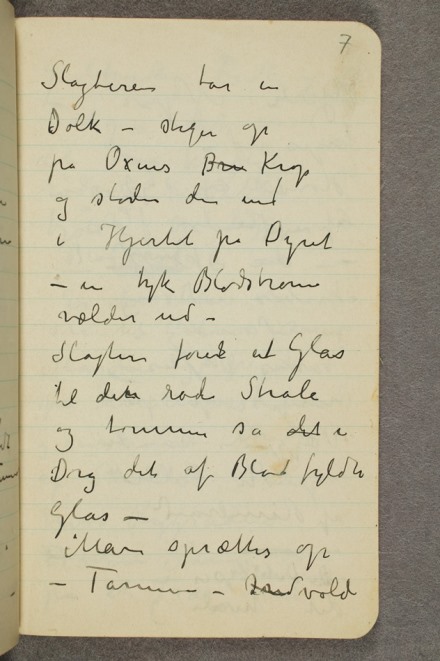 7
Slagteren tar en
Dolk – stiger op
på Oxens Krop
og støder den ind
i Hjertet på Dyret
– en tyk Blodstrøm
vælder ud –
Slagteren fører et Glas
til den røde Stråle
og tømmer så det i
Drag det af Blod fyldte
Glas —
Maven sprættes op
– Tarmene – Indvold